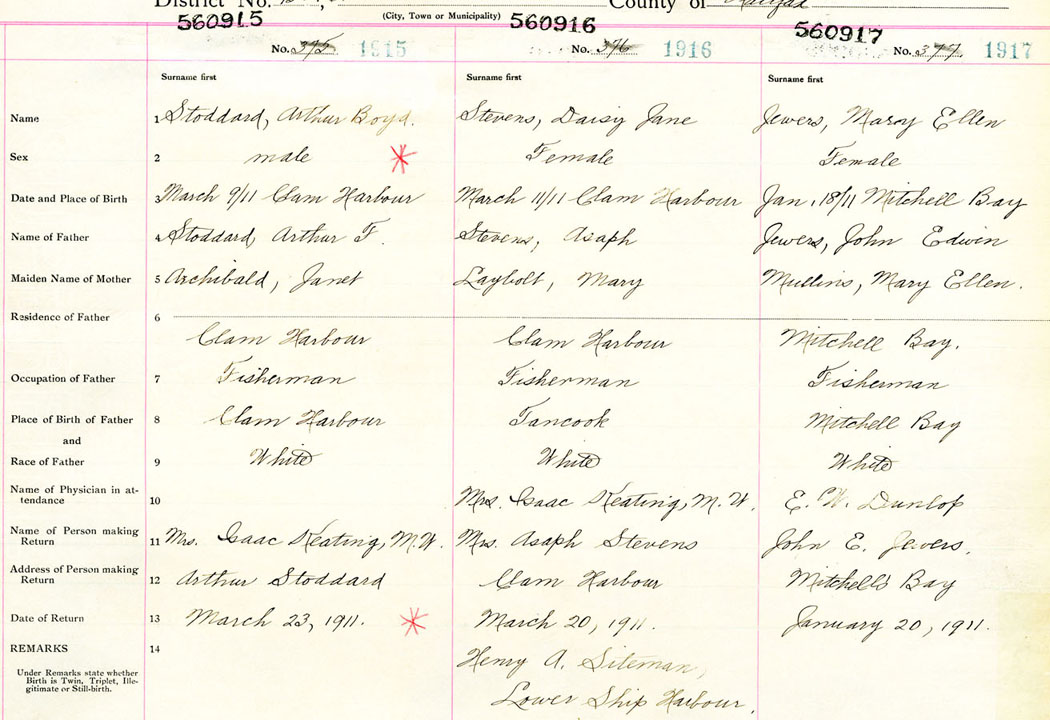 District No. County of Halifax
(City, Town or Municipality)
560915 560916 560917
No. 375 1915 No. 376 1916 No. 377 1917
Surname first Surname first Surname first
Name 1 Stoddard, Arthur Boyd. Stevens, Daisy Jane Jewers, Mary Ellen
Sex 2 male Female Female
Date and Place of Birth 3 March 9/11 Clam Harbour March 11/11 Clam Harbour Jan. 18/11 Mitchell Bay
Name of Father 4 Stoddard, Arthur F. Stevens, Asaph Jewers, John Edwin
Maiden Name of Mother 5 Archibald, Janet Laybolt, Mary Mullins, Mary Ellen.
Residence of Father 6
Clam Harbour Clam Harbour Mitchell Bay.
Occupation of Father 7 Fisherman Fisherman Fisherman
Place of Birth of Father 8 Clam Harbour Tancook Mitchell Bay
and
Race of Father 9 White White White
Name of Physician in at-
tendance 10 Mrs. Isaac Keating, M.W. E. W. Dunlop
Name of Person making
Return 11 Mrs. Isaac Keating, M.W. Mrs. Asaph Stevens John E. Jewers.
Address of Person making
Return 12 Arthur Stoddard Clam Harbour Mitchell's Bay
Date of Return 13 March 23, 1911. March 20, 1911. January 20, 1911.
REMARKS 14 Henry A. Siteman,
Under Remarks state whether
Birth is Twin, Triplet, Ille-
gitimate or Still-birth.
Lower Ship Harbour.